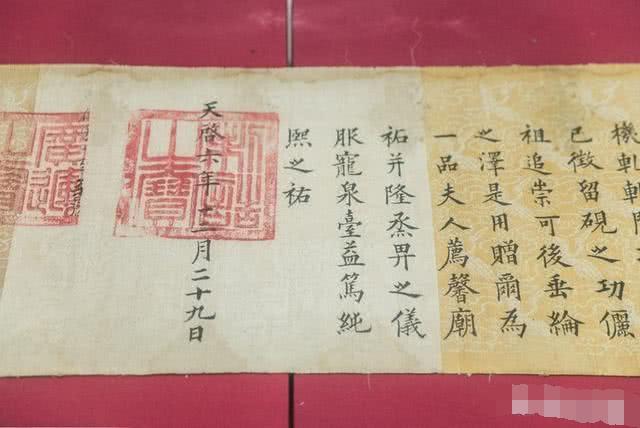 機軋
已徵留硯之功儷
祖追崇可後垂綸
之澤是用贈爾為
一品夫人薦馨廟
祏并隆烝畀之儀
服寵泉臺益篤純
熙之祐
天啓六年十一月二十九日
制誥之寶
廣運之寶